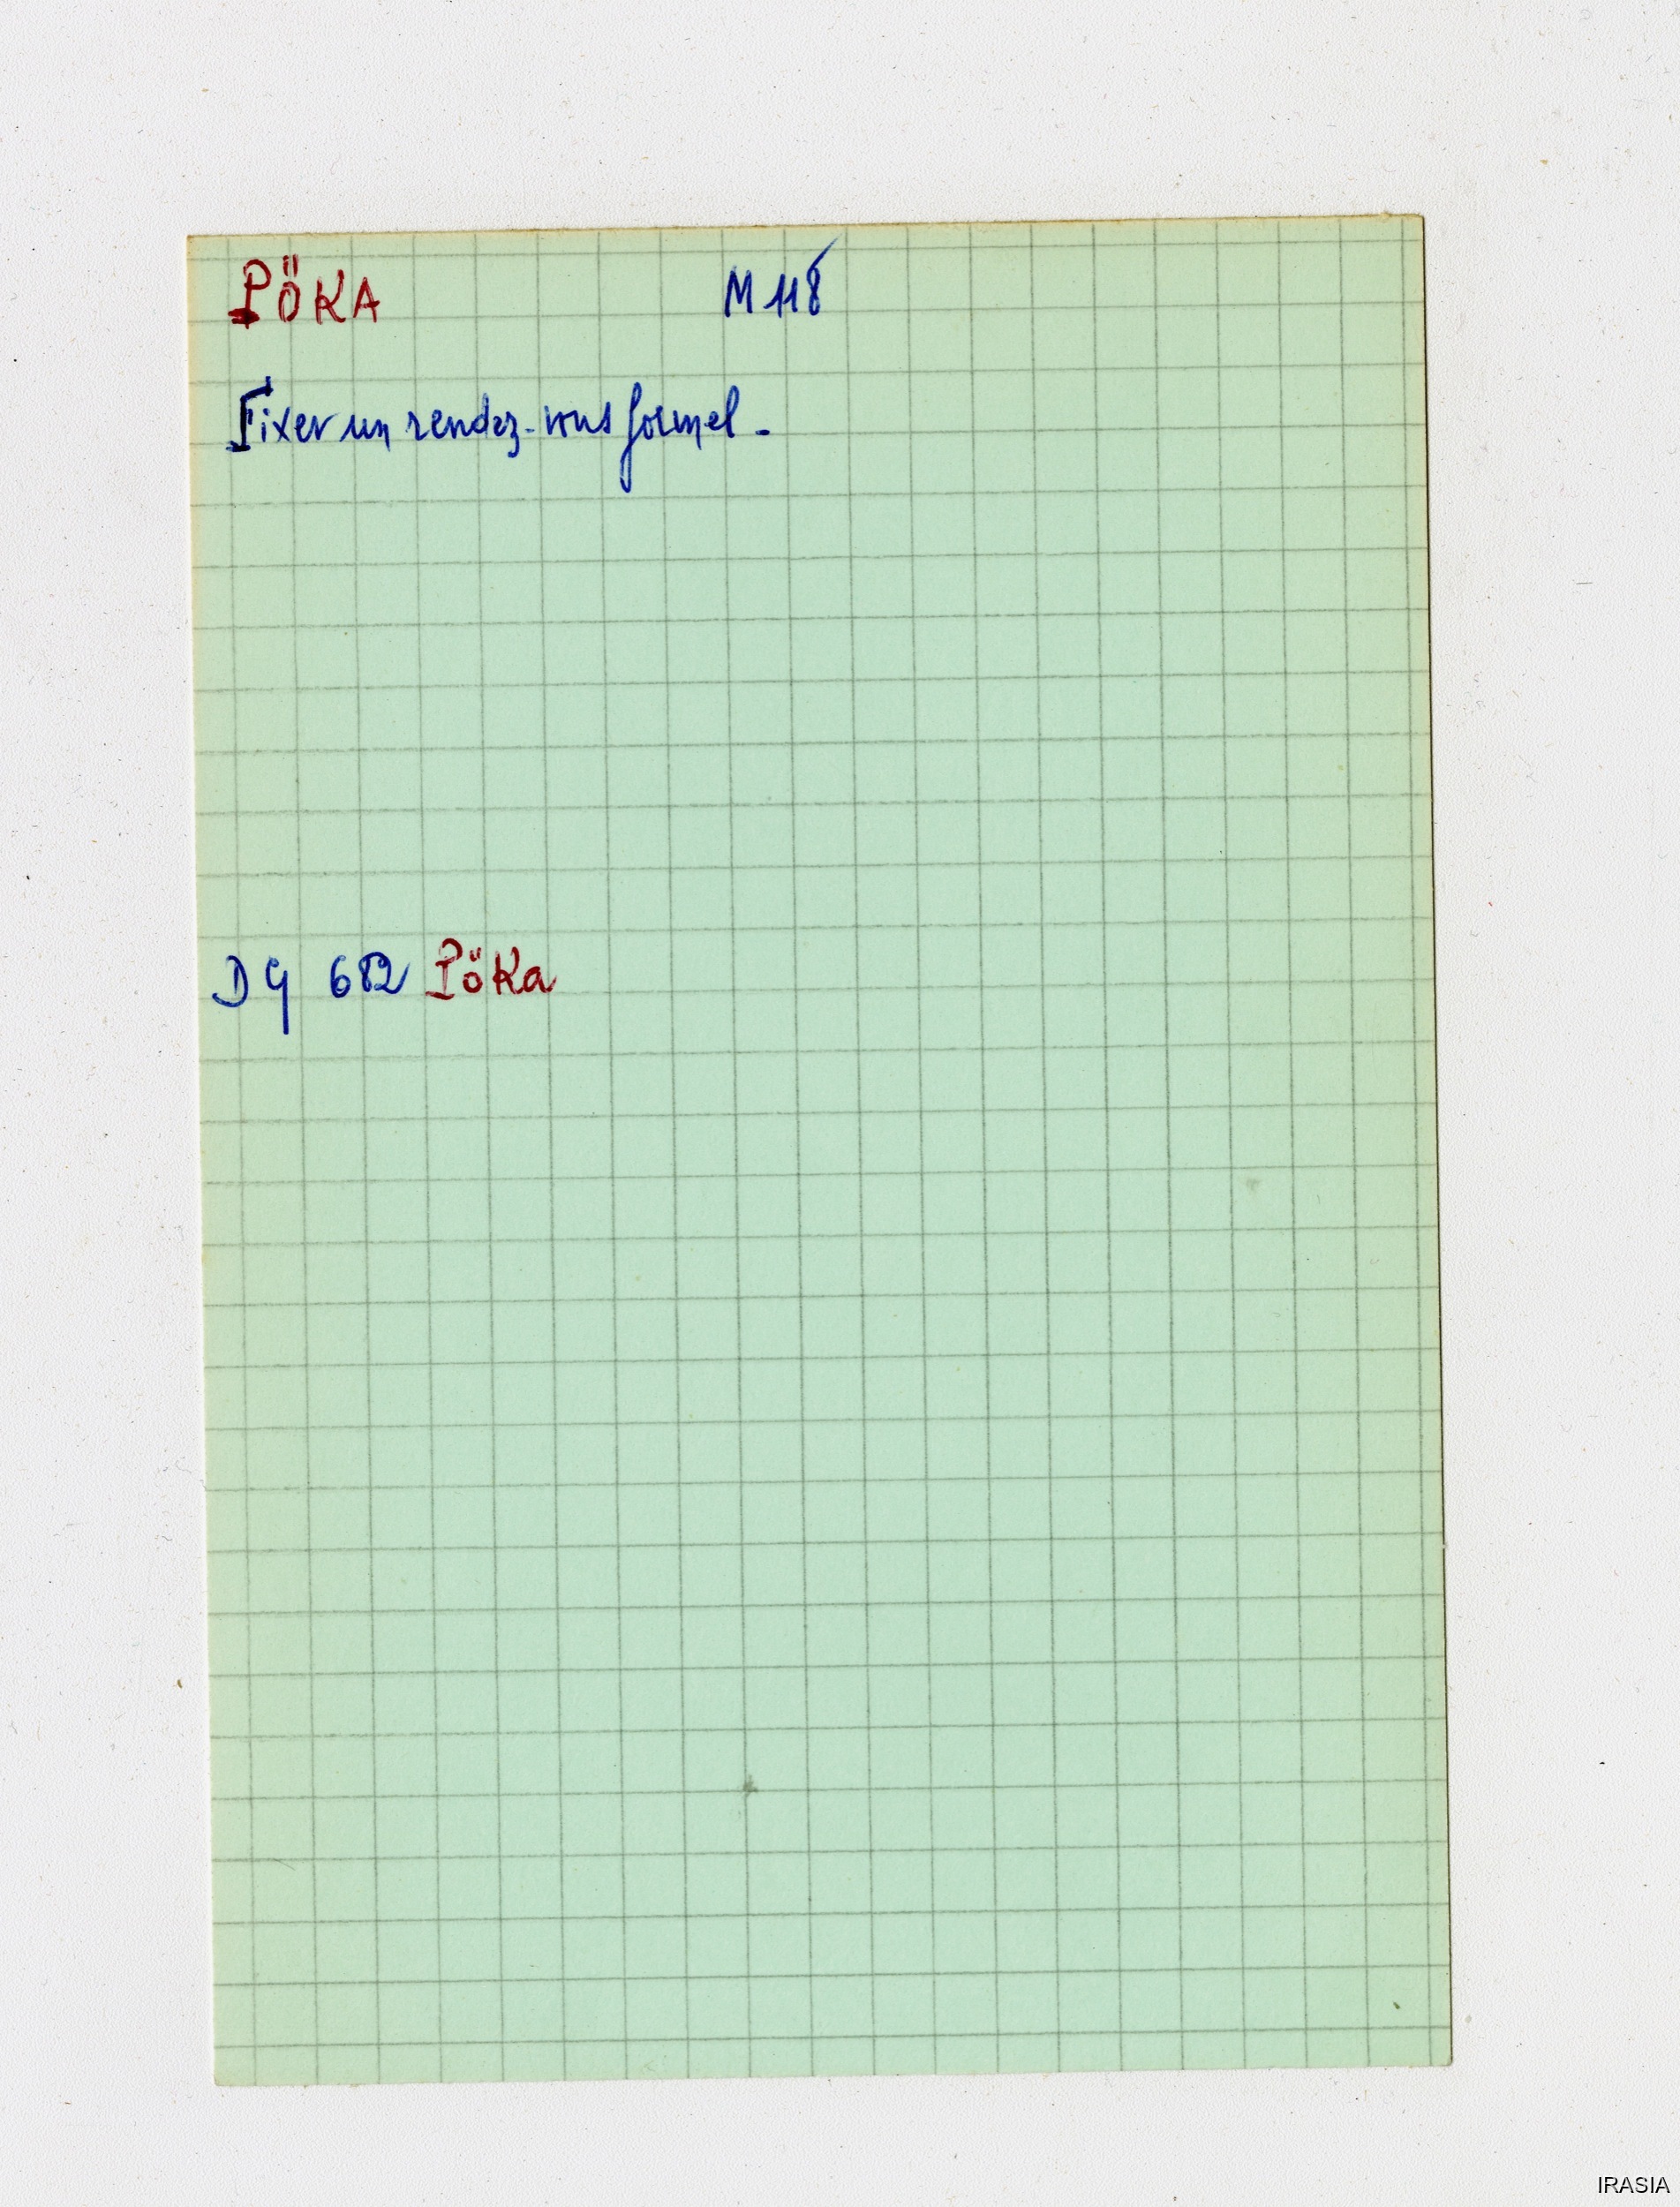 PÖKA M 118
Fixer un rendez-vous formel -
DG 682 PöKa
IRASIA